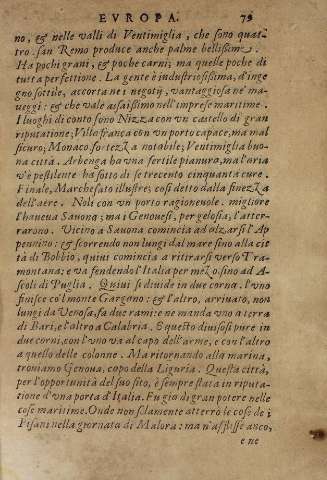 EVROPA. 79
no, & nelle valli di Ventimiglia, che sono quat-
tro. san Remo produce anche palme bellissime.
Ha pochi grani, & poche carni; ma quelle poche di
tutta perfettione. La gente è industriosissima, d'inge
gno sottile, accorta ne i negotij, vantaggiosa ne' ma-
neggi: & che vale assaissimo nell'imprese maritime.
I luoghi di conto sono Nizza con un castello di gran
riputatione; Villa franca con un porto capace, ma mal
sicuro; Monaco fortezza notabile; Ventimiglia buo-
na città. Arbenga ha vna fertile pianura, ma l'aria
v'è pestilente ha sotto di se trecento cinquanta cure.
Finale, Marchesato illustre, cosi detto dalla finezza
dell'aere. Noli con vn porto ragioneuole. migliore
l'haueua Sauona; ma i Genouesi, per gelosia, l'atter-
rarono. Vicino a Sauona comincia ad alzarsi l'Ap
pennino: & scorrendo non lungi dal mare sino alla cit
tà di Bobbio, quiui comincia a ritirarsi verso Tra-
montana; e va fendendo l'Italia per mezo. sino ad A-
scoli di Puglia. Quiui si diuide in due corna. l'vno
finisce co'l monte Gargano: & l'altro, arriuato, non
lungi da Venosa, fa due rami: e ne manda vno a terra
di Bari, e l'altro a Calabria. E questo diuisosi pure in
due corni, con l'vno va al capo dell'arme, e con l'altro
a quello delle colonne. Ma ritornando alla marina,
trouiamo Genoua, capo della Liguria. Questa città,
per l'opportunità del suo sito, è sempre stata in riputa-
tione d'vna porta d'Italia. Fu già di gran potere nelle
cose maritime. Onde non solamente atterrò le cose de i
Pisani nella giornata di Malora: ma n'afflisse anco,
e ne